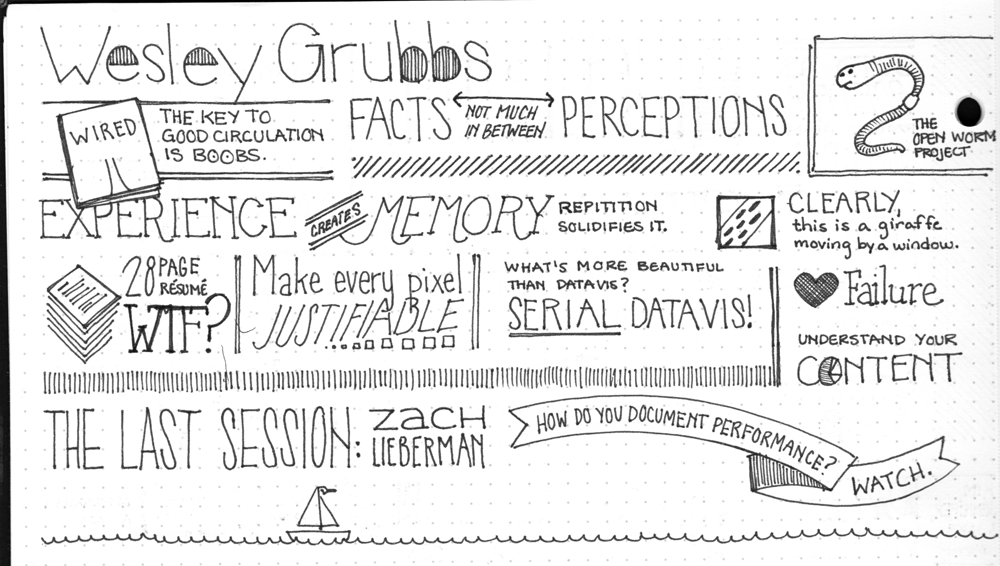 Wesley Grubbs
WIRED
THE KEY TO
GOOD CIRCULATION
IS BOOBS.
FACTS NOT MUCH
IN BETWEEN PERCEPTIONS
THE
OPEN WORM
PROJECT
EXPERIENCE CREATES MEMORY
REPITITION
SOLIDIFIES IT.
CLEARLY,
this is a giraffe
moving by a window.
28 PAGE
RÉSUMÉ
WTF?
Make every pixel
JUSTIFIABLE
WHAT'S MORE BEAUTIFUL
THAN DATAVIS?
SERIAL DATAVIS!
Failure
UNDERSTAND YOUR
CONTENT
THE LAST SESSION: ZACH
LIEBERMAN
HOW DO YOU DOCUMENT PERFORMANCE?
WATCH.